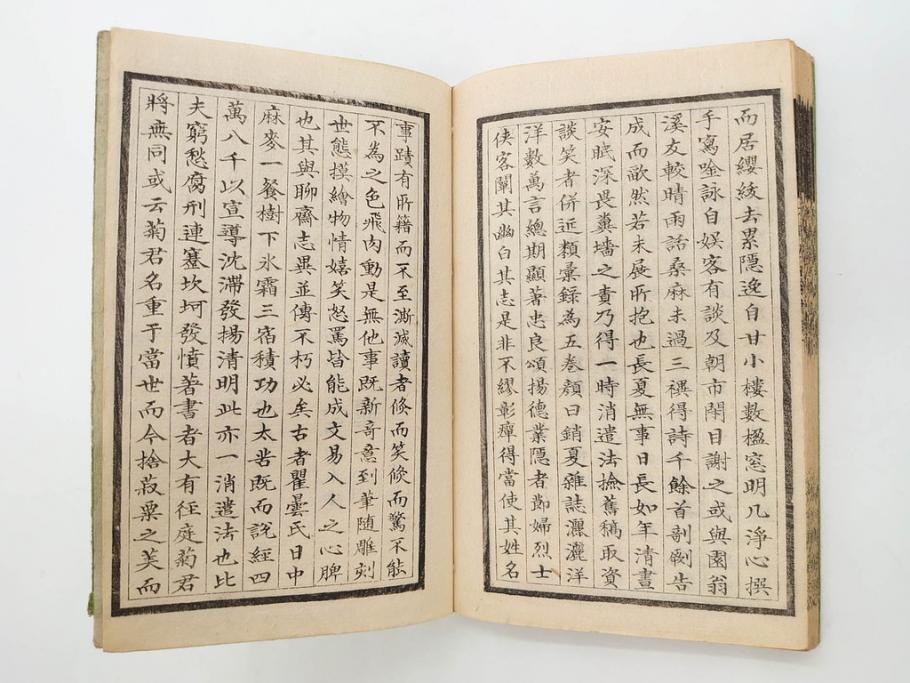 而居纓紱去累隱逸自甘小樓數楹窓明几淨心撰
手寫唫詠自娯客有談及朝市閑目謝之或與園翁
溪友較晴雨話桑麻未過三禩得詩千餘首剞劂告
成而歉然若未展所抱也長夏無事日長如年清晝
安眠深畏糞墻之責乃得一時消遣法撿舊稿取資
談笑者併近類彙錄為五卷顏曰銷夏雜誌灑灑洋
洋數萬言總期顯著忠良頌揚德業隱者節婦烈士
俠客闡其幽白其志是非不繆彰癉得當使其姓名
事蹟有所籍而不至澌滅讀者倐而笑倐而驚不能
不為之色飛肉動是無他事既新奇意到筆随雕刻
世態摸繪物情嬉笑怒罵皆能成文易入人之心脾
也其與聊齋志異並傳不朽必矣古者瞿曇氏日中
麻麥一餐樹下氷霜三宿積功也太苦既而說經四
萬八千以宣導沈滯發揚清明此亦一消遣法也比
夫窮愁腐刑連蹇坎坷發憤著書者大有徑庭菊君
將無同或云菊君名重于當世而今捨菽粟之芙而